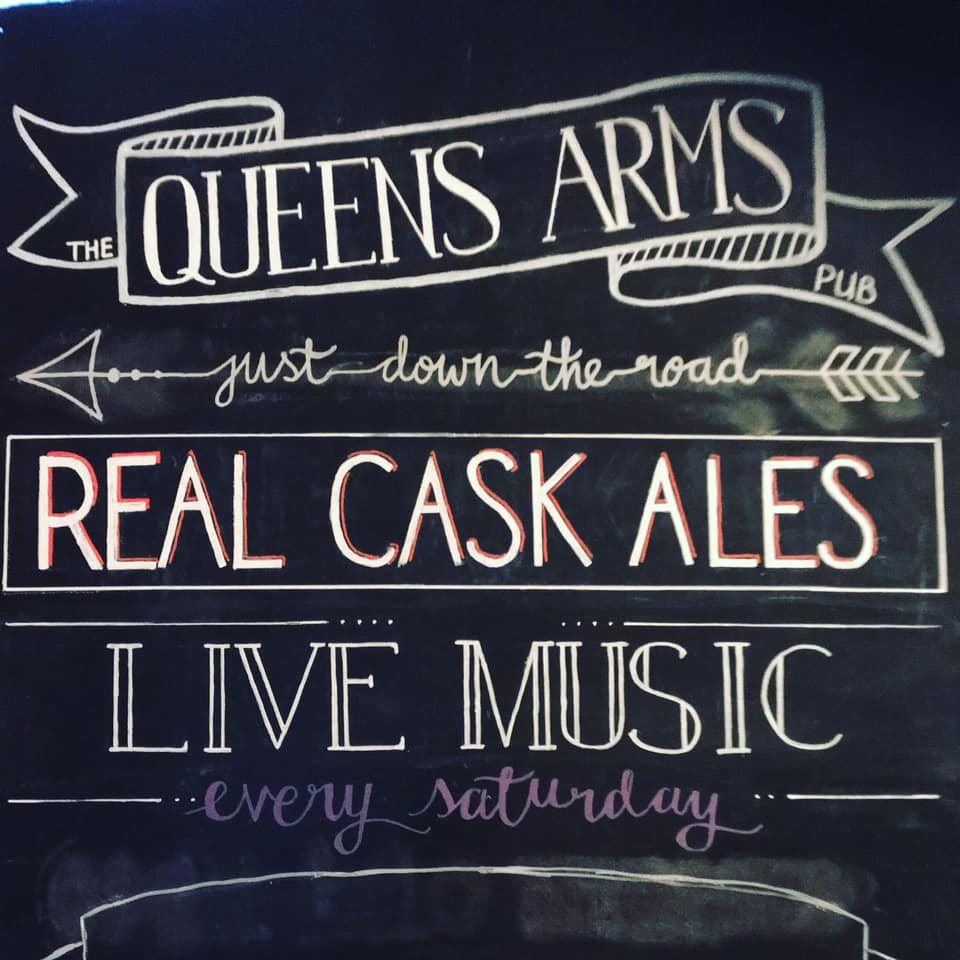 THE QUEENS ARMS PUB
just down the road
REAL CASK ALES
LIVE MUSIC
every saturday